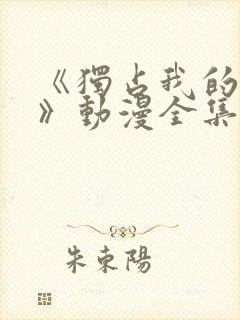 《獨占我的
》動漫全集
朱束陽